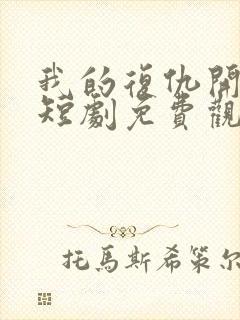 我的復仇開
短劇免費觀
托馬斯希策尔